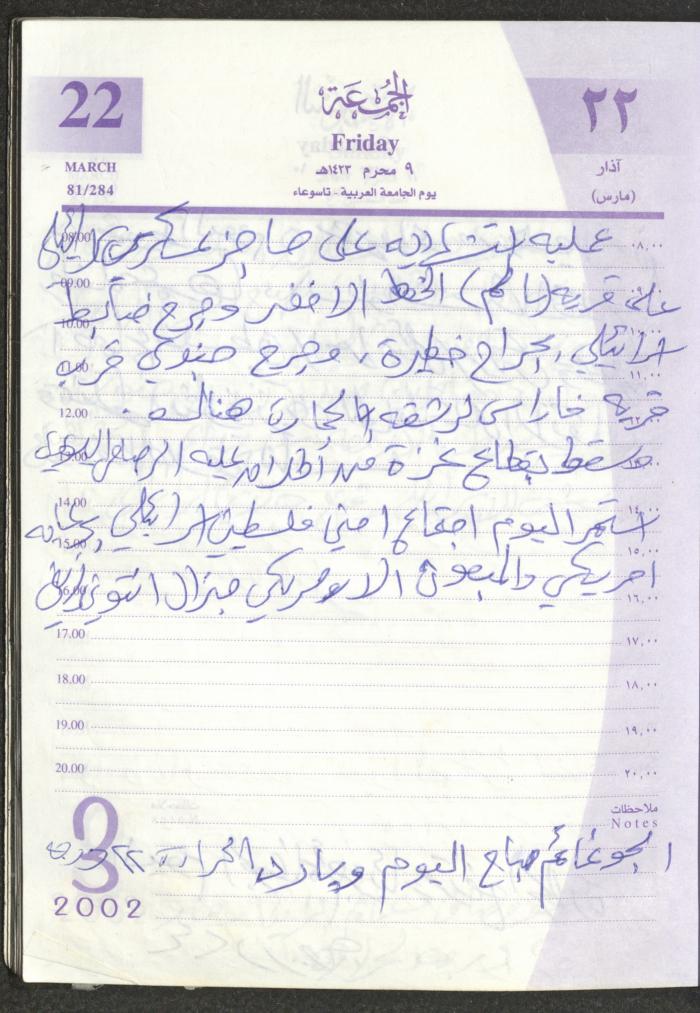 22
الجمعة
٢٢
Friday
MARCH
٩ محرم ١٤٢٣هـ
آذار
81/284
يوم الجامعة العربية - تاسوعاء
(مارس)
عمليه استشهاديه على حاجز عسكري اسرائيلي
08.00 ٠٨,٠٠
على قريه (سالم) الخط الاخضر وجرح ضابط
09.00
10.00
اسرائيلي بجراح خطيرة، وجرح قرب
11.00 ١١,٠٠
قريه خاراس لرشقه بالحجارة هناك.
12.00
سقط بقطاع غزة عليه الرصاص
13.00
14.00 ١٤,٠٠
استمر اليوم اجتماع امني فلسطيني اسرائيلي
15.00 ١٥,٠٠
امريكي والمبعوث الامريكي جنرال انتوني زيني
16.00 ١٦,٠٠
17.00 ١٧,٠٠
18.00 ١٨,٠٠
19.00 ١٩,٠٠
20.00 ٢٠,٠٠
ملاحظات
Notes
الجو غائم صباح اليوم وبارد الحرارة ٢٢ درجه
3
2002